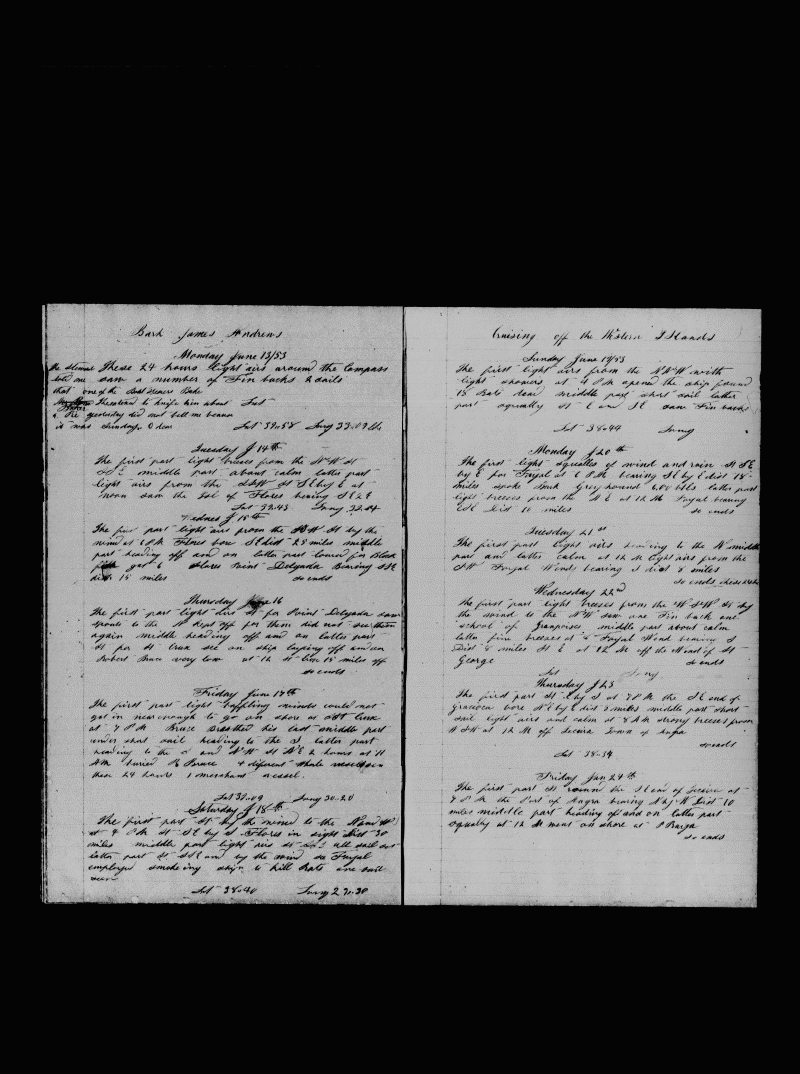 Bark James Andrews
Monday June 13/53
the Steward These 24 hours light airs around the Compass
told me saw a number of Fin backs 2 sails
that one of the Boat Steerers Bade
threatened to knife him about
yesterday did not tell me because
it was Sunday O dear Lat 39=58 Long 33=09
Tuesday J 14th
The first part light breeses from the NW St
middle part about calm latter part
light airs from the St SE by E at
noon saw the Isl of Flores bearing SE 2 E
Lat 39=43 Long 32=04
Wednes J 15th
The first part light airs from the St by the
wind at 6 PM Flores bore SE dist 25 miles middle
part heading off and on latter part lowerd for Black
fish got 6 Flores Point Delgada Bearing
dist 15 miles so ends
Thursday June 16
The first part light airs St for Point Delgada saw
spouts to the N Kept off for them did not see them
again middle heading off and on latter part
St for St Crux see on ship laying off and on
Robert Bruce very low at 12 St Cruse 15 miles off
so ends
Friday June 17th
The first part light baffling winds could not
get in near enough to go on shore at St Cruse
at 7 PM Bruce Breathed his last middle part
under short sail heading to the S latter part
heading to the and NW St NE 2 hours at 11
AM buried R Bruce 4 diferent whale vessels seen
these 24 hours 1 merchant vessel
Lat 39=09 Long 30=20
Saturday J 18th
The first part St by the wind to the
at 4 PM St SE by S Flores in sight Dist 30
miles middle part light airs St all sail out
latter part St SSE and by the wind so Fuyal
employed smokeing ship to kill Rats one sail
seen
Lat 38=40 Long 2
Cruising off the Western Islands
Sunday June 19/53
The first light airs from the NNW with
light showers at 4 PM opened the ship found
18 Rats dead middle part short sail latter
part squally St E and SE saw Fin backs
Lat 38=44 Long
Monday J 20th
The first light squalles of wind and rain St SE
by E for Fuyal at 6 PM bearing SE by E dist 18
miles spoke Bark Greyhound 600 bbls latter part
light breeses from the NE at 12 M Fuyal bearing
ESE Dist 10 miles so ends
Tuesday 21st
The first part light airs heading to the W middle
part and latter calm at 12 M light airs from the
SW Fuyal Wend bearing S dist 8 miles
so ends these 24 hs
Wednesday 22nd
The first part light breeses from the WSW St by
the wind to the NW saw one Fin back one
school of Granpoises middle part about calm
latter fine breeses at 6 Fuyal Wend bearing S
Dist 8 miles St E at 12 M off the W end of St
George so ends
Lat Long
Thursday J 23
The first part St E by S at 7 PM the SE end of
Graciosa bore NE by E dist 3 miles middle part short
sail light airs and calm at 8 AM strong breeses from
WSW at 12 M off Secura Town of Angra
so ends
Lat 38=34
Friday Jun 24th
The first part St round the SE end of Secura at
7 PM the Port of Angra bearing N by W Dist 10
miles middle part heading off and on latter part
squally at 12 M went on shore at
so ends